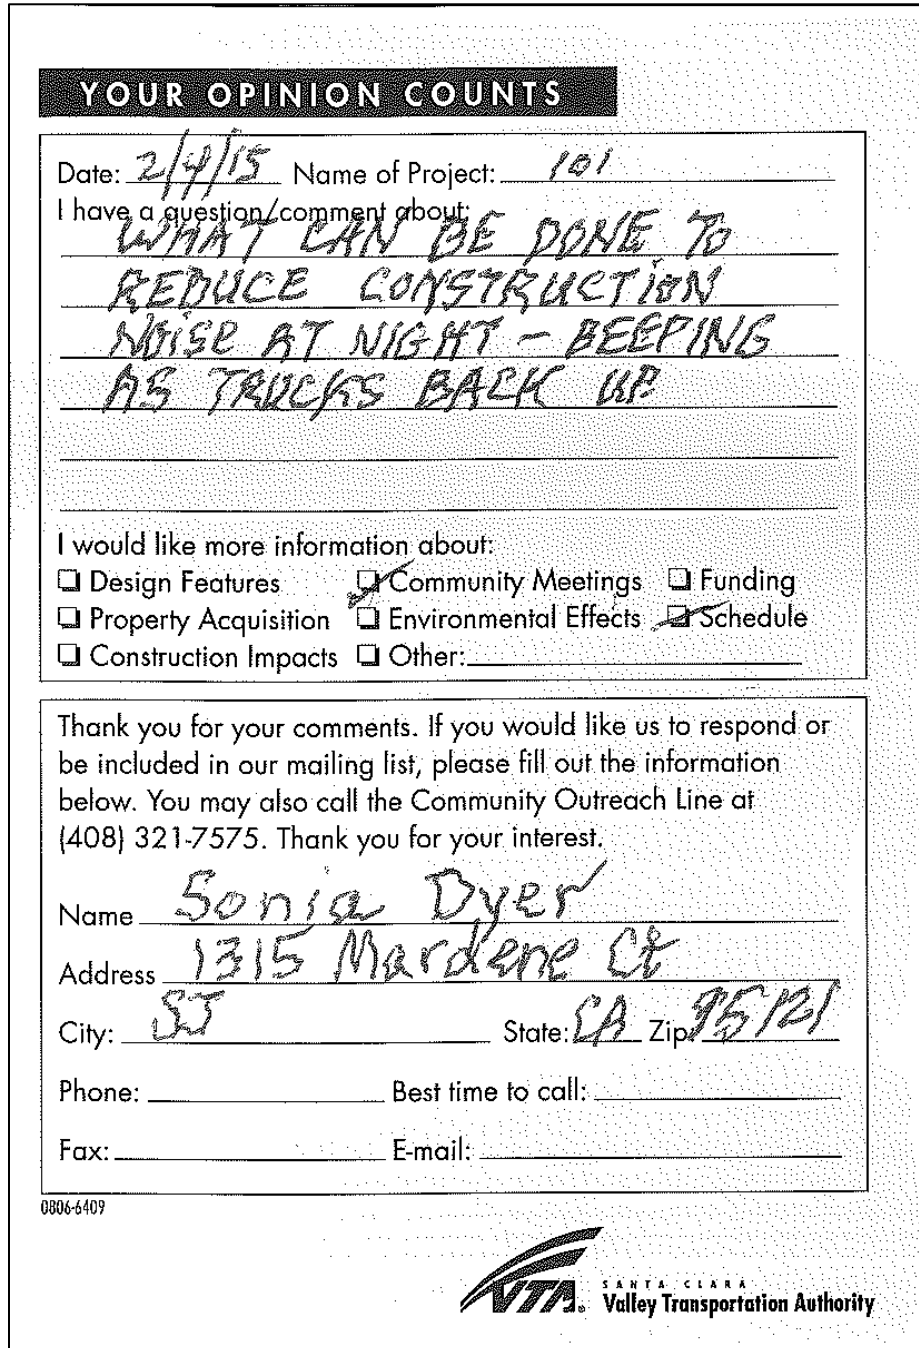 YOUR OPINION COUNTS
Date: 2/4/15 Name of Project: 101
I have a question/comment about:
WHAT CAN BE DONE TO
REDUCE CONSTRUCTION
NOISE AT NIGHT - BEEPING
AS TRUCKS BACK UP
I would like more information about:
Design Features Community Meetings Funding
Property Acquisition Environmental Effects Schedule
Construction Impacts Other:
Thank you for your comments. If you would like us to respond or
be included in our mailing list, please fill out the information
below. You may also call the Community Outreach Line at
(408) 321-7575. Thank you for your interest.
Name Sonia Dyer
Address 1315 Mardene Ct
City: SJ State: CA Zip 95121
Phone: Best time to call:
Fax: E-mail:
0806-6409
SANTA CLARA
VTA. Valley Transportation Authority